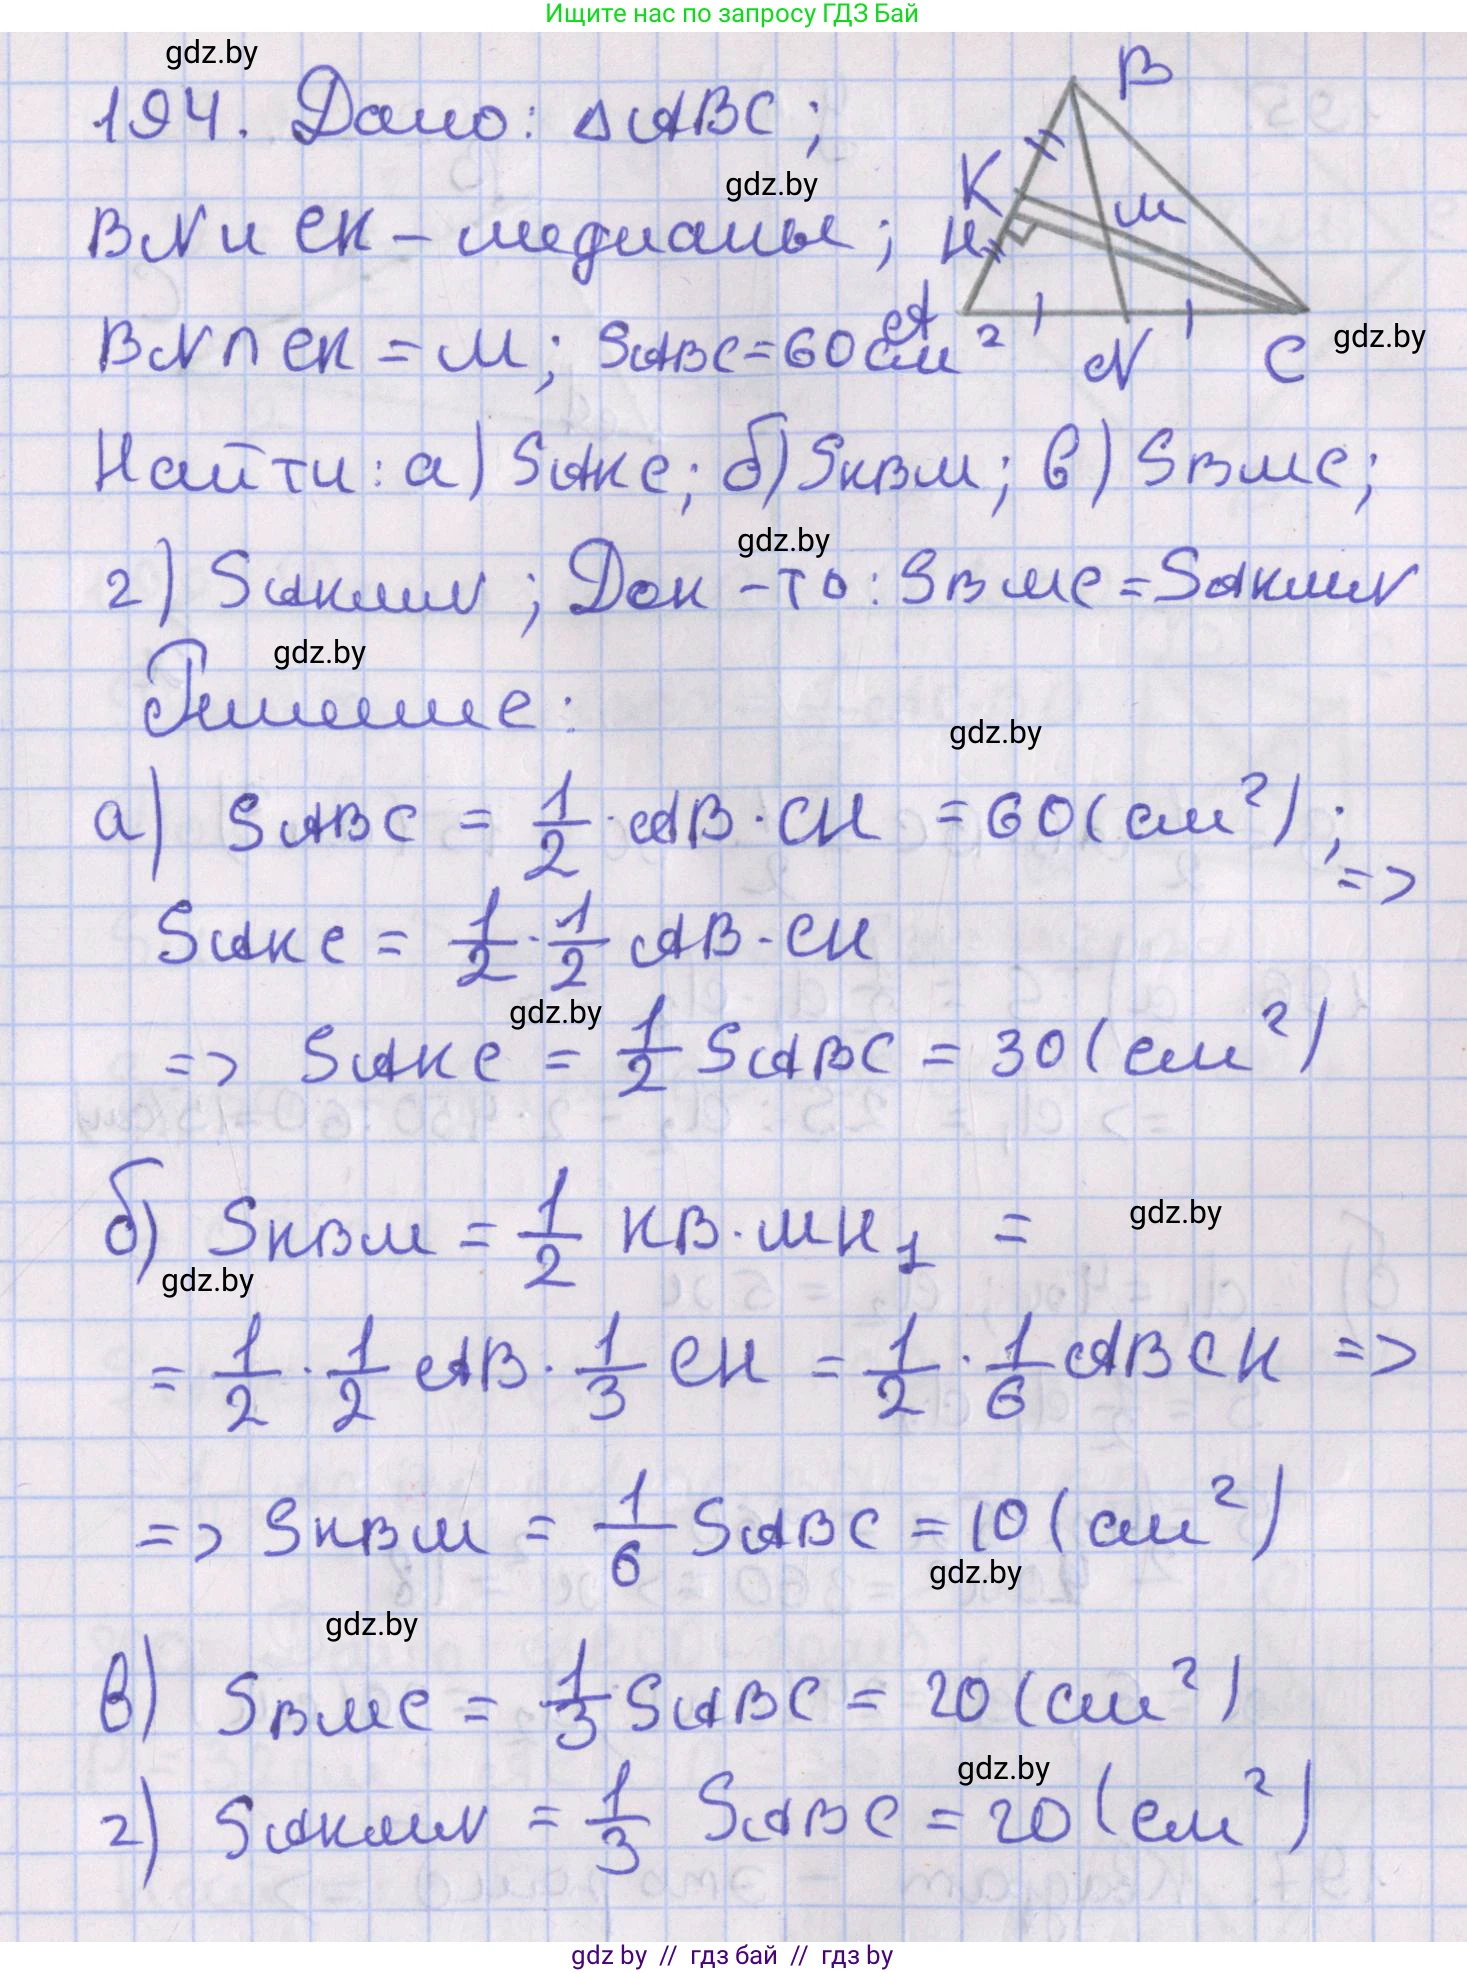 Ищите нас по запросу ГДЗ Бай
gdz.by
194. Дано: △ABC;
B
gdz.by
K
M
BN и CK – медианы;
H
BN ∩ CK = M; SABC = 60 см²
A
N
C
gdz.by
Найти: а) SAKC; б) SKBM; в) SBMC;
gdz.by
г) SAKMN; Док-ть: SBMC = SAKMN
gdz.by
Решение:
gdz.by
а) SABC = 1/2 · AB · CH = 60 (см²); =>
SAKC = 1/2 · 1/2 AB · CH
gdz.by
=> SAKC = 1/2 SABC = 30 (см²)
б) SKBM = 1/2 KB · MH1 =
gdz.by
gdz.by
= 1/2 · 1/2 AB · 1/3 CH = 1/2 · 1/6 ABCH =>
=> SKBM = 1/6 SABC = 10 (см²)
gdz.by
gdz.by
в) SBMC = 1/3 SABC = 20 (см²)
gdz.by
г) SAKMN = 1/3 SABC = 20 (см²)
gdz by // гдз бай // гдз by